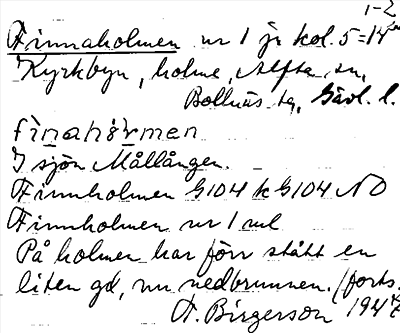 1-2
Finnaholmen nr 1 jr kol. 5=14
Kyrkbyn, holme, Alfta sn,
Bollnäs tg, Gävl. l.
finahòrmen
I sjön Mållången.
Finnholmen G104 k G104 NO
Finnholmen nr 1 ml
På holmen har förr stått en
liten gd, nu nedbrunnen. (forts.
A. Birgerson 194